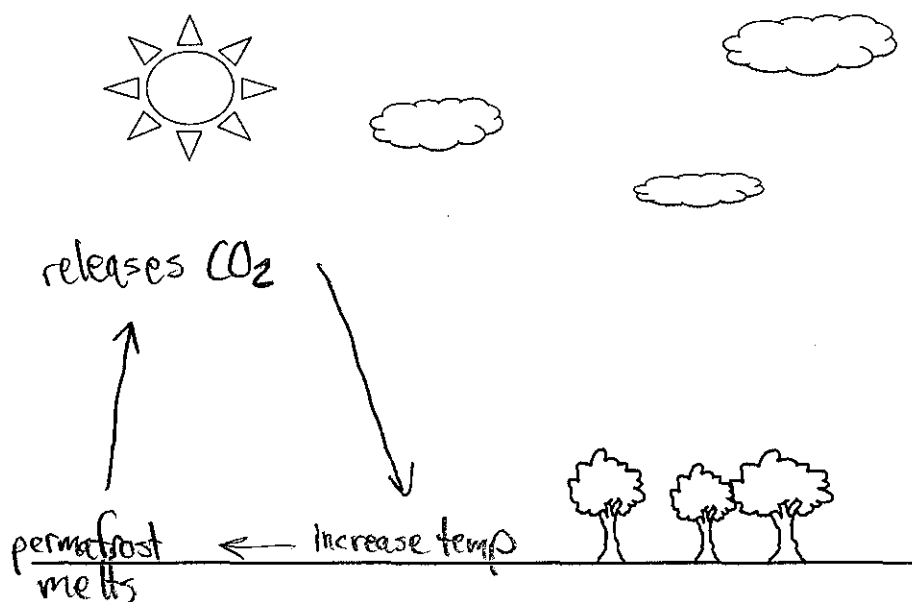 releases CO₂
permafrost
melts
increase temp